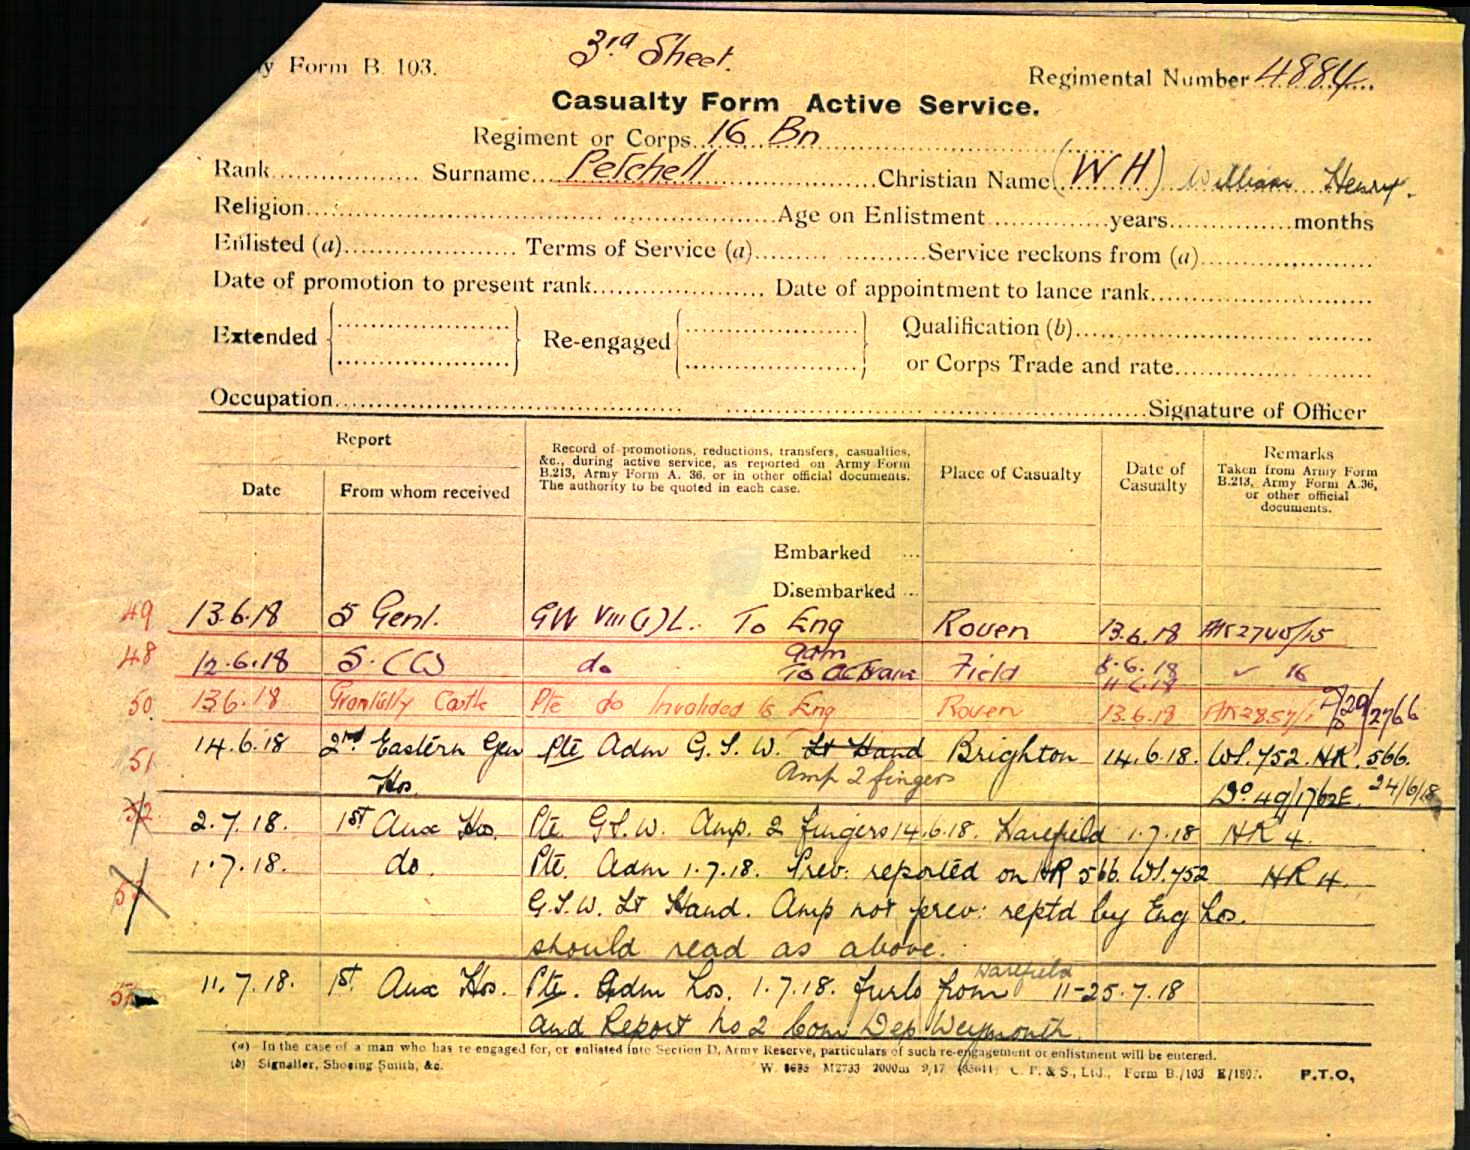 y Form B. 103.
3rd Sheet.
Regimental Number 4884
Casualty Form Active Service.
Regiment or Corps 16 Bn
Rank Surname Petchell Christian Name (W H) William Henry.
Religion Age on Enlistment years months
Enlisted (a) Terms of Service (a) Service reckons from (a)
Date of promotion to present rank Date of appointment to lance rank
Extended Re-engaged Qualification (b)
or Corps Trade and rate
Occupation Signature of Officer
Report
Date
From whom received
Record of promotions, reductions, transfers, casualties, &c., during active service, as reported on Army Form B.213, Army Form A. 36, or in other official documents. The authority to be quoted in each case.
Place of Casualty
Date of Casualty
Remarks
Taken from Army Form B.213, Army Form A.36, or other official documents.
Embarked
Disembarked
49 13.6.18 5 Genl. GW VIII(1)L. To Eng Rouen 13.6.18
48 12.6.18 do adm Field 8.6.18 16
11.6.18
50 13.6.18 Castle Pte do Invalided to Eng Rouen 13.6.18 2766
51 14.6.18 2nd Eastern Gen Pte Adm G.S.W. Lt Hand Brighton 14.6.18. WS.752. HR. 566.
Hos. Amp 2 fingers 24/6/18
52 2.7.18. 1st Aux Hos. Pte G.S.W. Amp. 2 fingers 14.6.18. Harefield 1.7.18 HR 4
1.7.18. do. Pte. Adm 1.7.18. Prev: reported on HR 566. WS.752 HR 4.
G.S.W. Lt Hand. Amp not prev: reptd by Eng Hos.
should read as above.
11.7.18. 1st Aux Hos. Pte. Adm Hos. 1.7.18. furlo from Harefield 11-25.7.18
and Report No 2 Com Dep Weymouth.
(a) In the case of a man who has re-engaged for, or enlisted into Section D, Army Reserve, particulars of such re-engagement or enlistment will be entered.
(b) Signaller, Shoeing Smith, &c.
M2733 2000m 9/17 C. P. & S., Ltd., Form B./103
P.T.O.